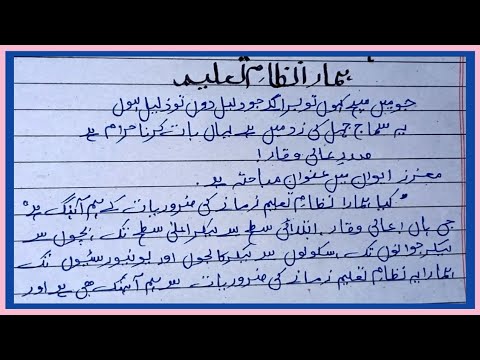 ہمارا نظامِ تعلیم
جو میں سچ کہوں تو برا لگے جو دلیل دوں تو ذلیل ہوں
یہ سماج جہل کی زد میں ہے یہاں بات کرنا حرام ہے
صدرِ عالی وقار!
معزز ایوان میں عنوانِ مباحثہ ہے۔
"کیا ہمارا نظام تعلیم زمانے کی ضروریات کے ہم آہنگ ہے"
جی ہاں! عالی وقار۔ ابتدائی سطح سے لیکر اعلیٰ سطح تک، بچوں سے
لیکر جوانوں تک، سکولوں سے لیکر کالجوں اور یونیورسٹیوں تک
ہمارا یہ نظام تعلیم زمانے کی ضروریات سے ہم آہنگ بھی ہے اور